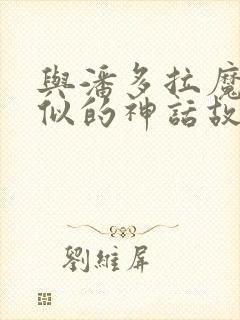 與潘多拉魔
似的神話故
劉維屏